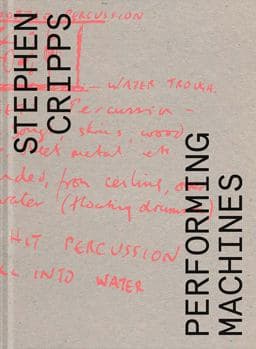 PERCUSSION
STEPHEN
CRIPPS
WATER TROUGH.
Percussion -
skins, wood,
sheet metal etc
from ceiling,
water (floating drums)
HIT PERCUSSION
INTO WATER
PERFORMING
MACHINES